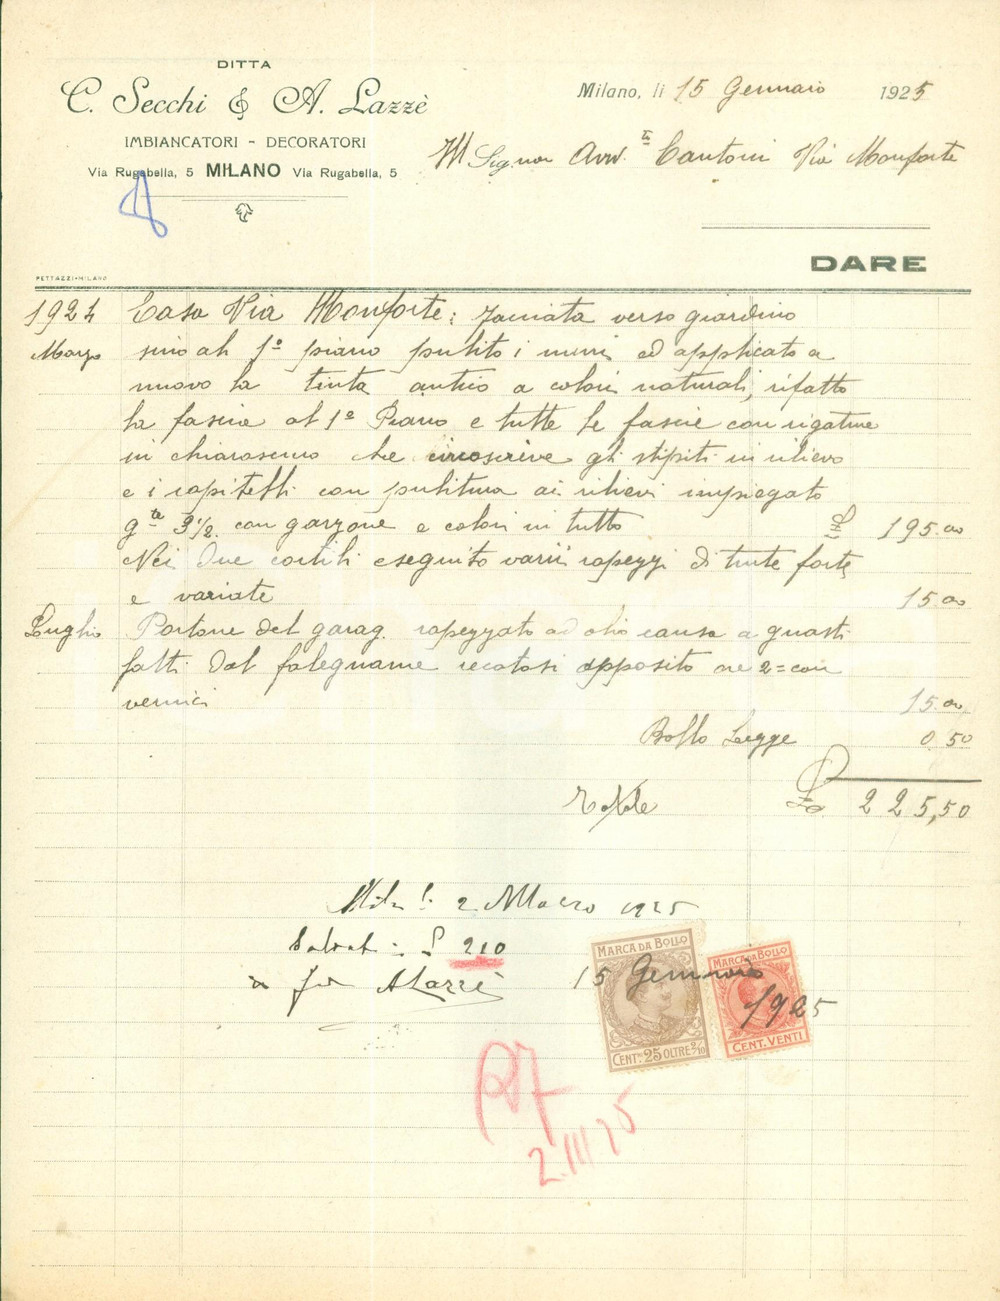 DITTA
C. Secchi & A. Lazzè
IMBIANCATORI - DECORATORI
Via Rugabella, 5 MILANO Via Rugabella, 5
Milano, li 15 Gennaio 1925
Ill Signor Avv.to Cantoni Via Monforte
DARE
PETTAZZI-MILANO
1924 Casa Via Monforte: facciata verso giardino
Marzo sino al 1º piano pulito i muri ed applicato a
nuovo la tinta antico a colori naturali, rifatto
la fascia al 1º Piano e tutte le fascie con rigature
in chiaroscuro che circoscrive gli stipiti in rilievo
e i capitelli con pulitura ai rilievi impiegato
g.te 3½ con garzone e colori in tutto 195.00
Nei due cortili eseguito varii rapezzi di tinte forte
e variate 15.00
Luglio Portone del garag. rapezzato ad olio causa a guasti
fatti dal falegname recatosi apposito ore 2= con
vernici 15.00
Bollo Legge 0.50
Totale 225,50
Milano li 2 Marzo 1925
Saldat £ 210
A Lazzè
15 Gennaio
1925
MARCA DA BOLLO
CENT. 25 OLTRE 2/10
MARCA DA BOLLO
CENT. VENTI
2.III 25